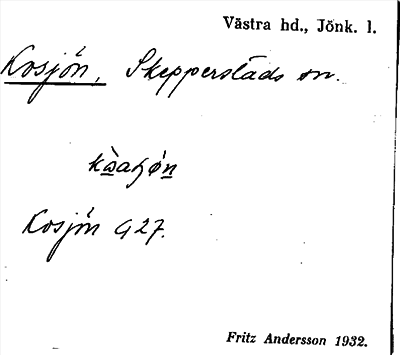 Västra hd., Jönk. l.
Kosjön, Skepperstads sn.
Kosjön G27.
Fritz Andersson 1932.